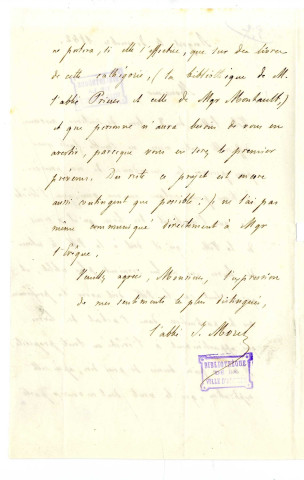 ne portera, si elle s'effectue, que sur des livres
de cette cathégorie, (la bibliothèque de M.
l'abbé Prieur et celle de Mgr Montault,)
et que personne n'aura besoin de vous en
avertir, parceque vous en serez le premier
prévenu. Du reste ce projet est encore
aussi contingent que possible: je ne l'ai pas
même communiqué directement à Mgr
l'évêque.
Veuillez agréer, Monsieur, l'expression
de mes sentiments les plus distingués,
l'abbé J. Morel
BIBLIOTHÈQUE
VILLE